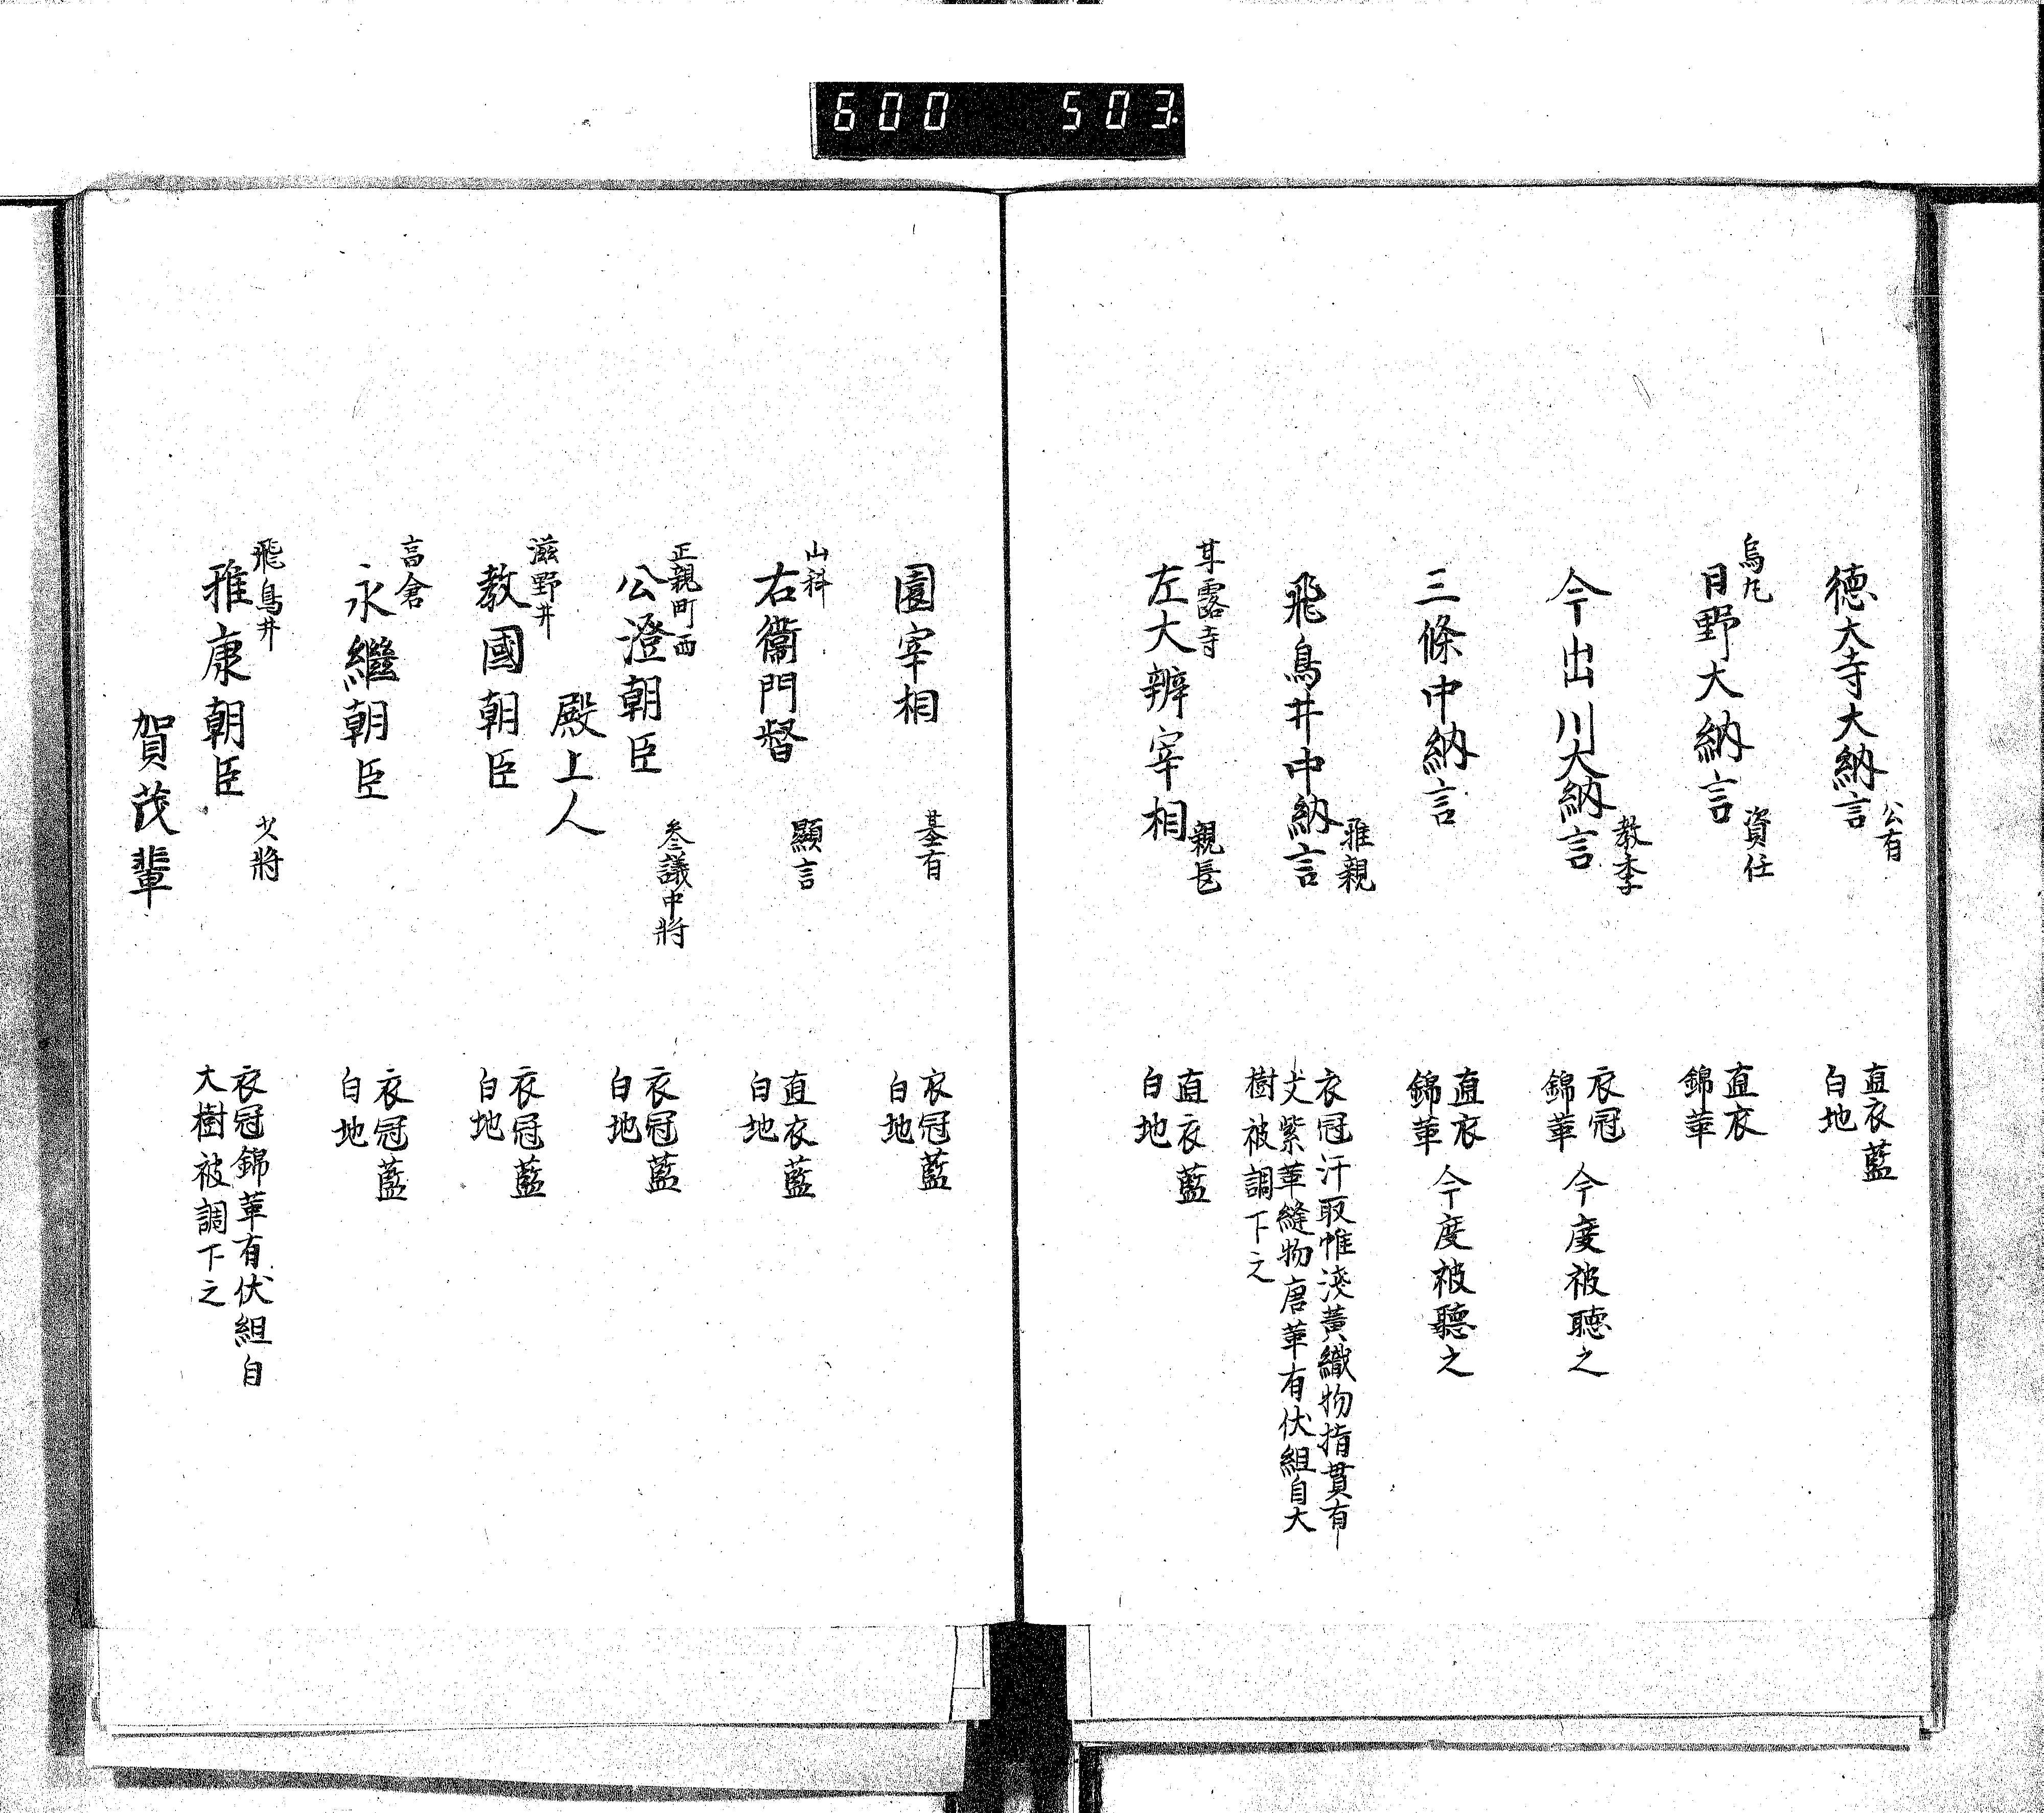 600 503
徳大寺大納言 公有 直衣藍
白地
烏丸
日野大納言 資任 直衣
錦革
今出川大納言 教季 衣冠
錦革 今度被聴之
三條中納言 直衣
錦革 今度被聴之
飛鳥井中納言 雅親 衣冠汗取帷淺黄織物指貫有
文紫革縫物唐革有伏組自大
樹被調下之
甘露寺
左大辨宰相 親長 直衣藍
白地
園宰相 基有 衣冠藍
白地
山科
右衞門督 顯言 直衣藍
白地
正親町西
公澄朝臣 参議中将 衣冠藍
白地
殿上人
滋野井
教國朝臣 衣冠藍
白地
高倉
永繼朝臣 衣冠藍
白地
飛鳥井
雅康朝臣 少将 衣冠錦革有伏組自
大樹被調下之
賀茂輩